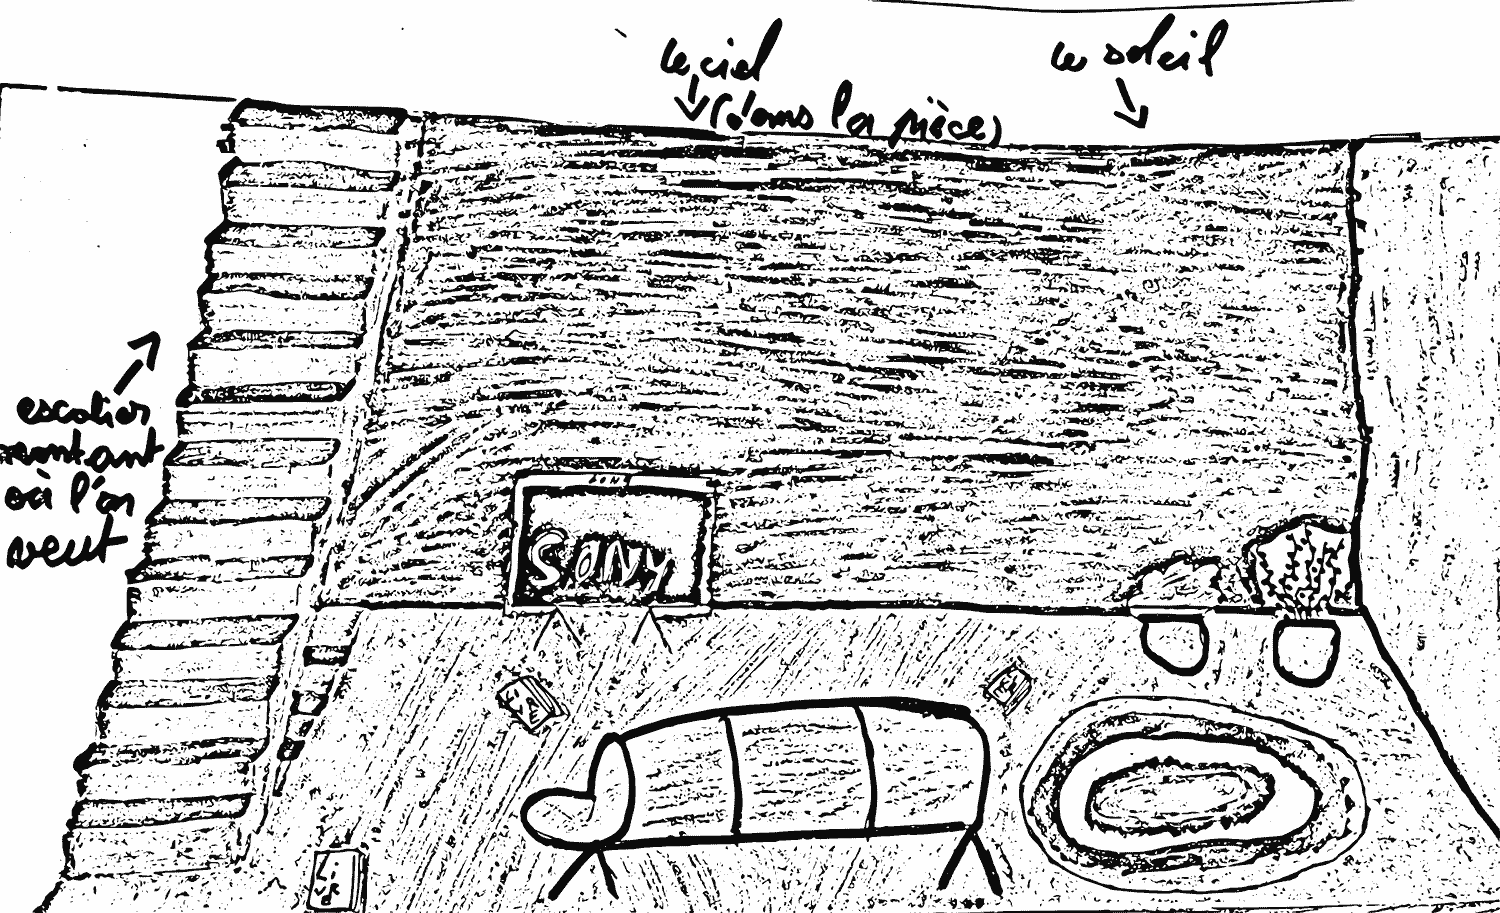 le ciel
(dans la pièce)
le soleil
escalier
montant
où l'on
veut
SONY
SONY
LIRE
LIVRE